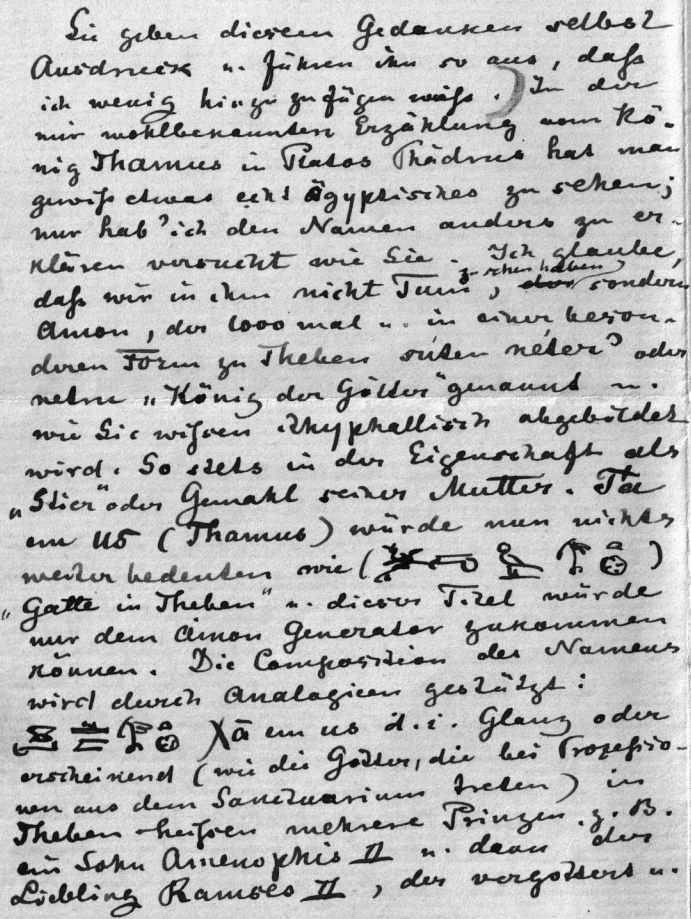 Sie geben diesem Gedanken selbst
Ausdruck u. führen ihn so aus, daß
ich wenig hinzu zufügen weiß.) In der
mir wohlbekannten Erzählung vom Kö-
nig Thamus in Platos Phädrus hat man
gewiß etwas echt Ägyptisches zu sehen;
nur hab' ich den Namen anders zu er-
klären versucht wie Sie. Ich glaube,
daß wir in ihm nicht Tum zu sehen haben, sondern
Amon, der 1000 mal u. in einer beson-
deren Form zu Theben suten neter oder
netru „König der Götter" genannt u.
wie Sie wissen ithyphallisch abgebildet
wird. So stets in der Eigenschaft als
„Stier" oder Gemahl seiner Mutter. Ta
em us (Thamus) würde nun nichts
weiter bedeuten wie ( )
„Gatte in Theben" u. dieser Titel würde
nur dem Amon Generator zukommen
können. Die Composition des Namens
wird durch Analogieen gestützt:
Xā em us d. i. Glanz oder
erscheinend (wie die Götter, die bei Prozessio-
nen aus dem Sanctuarium treten) in
Theben heißen mehrere Prinzen. z. B.
ein Sohn Amenophis II u. dann der
Liebling Ramses II, der vergöttert u.